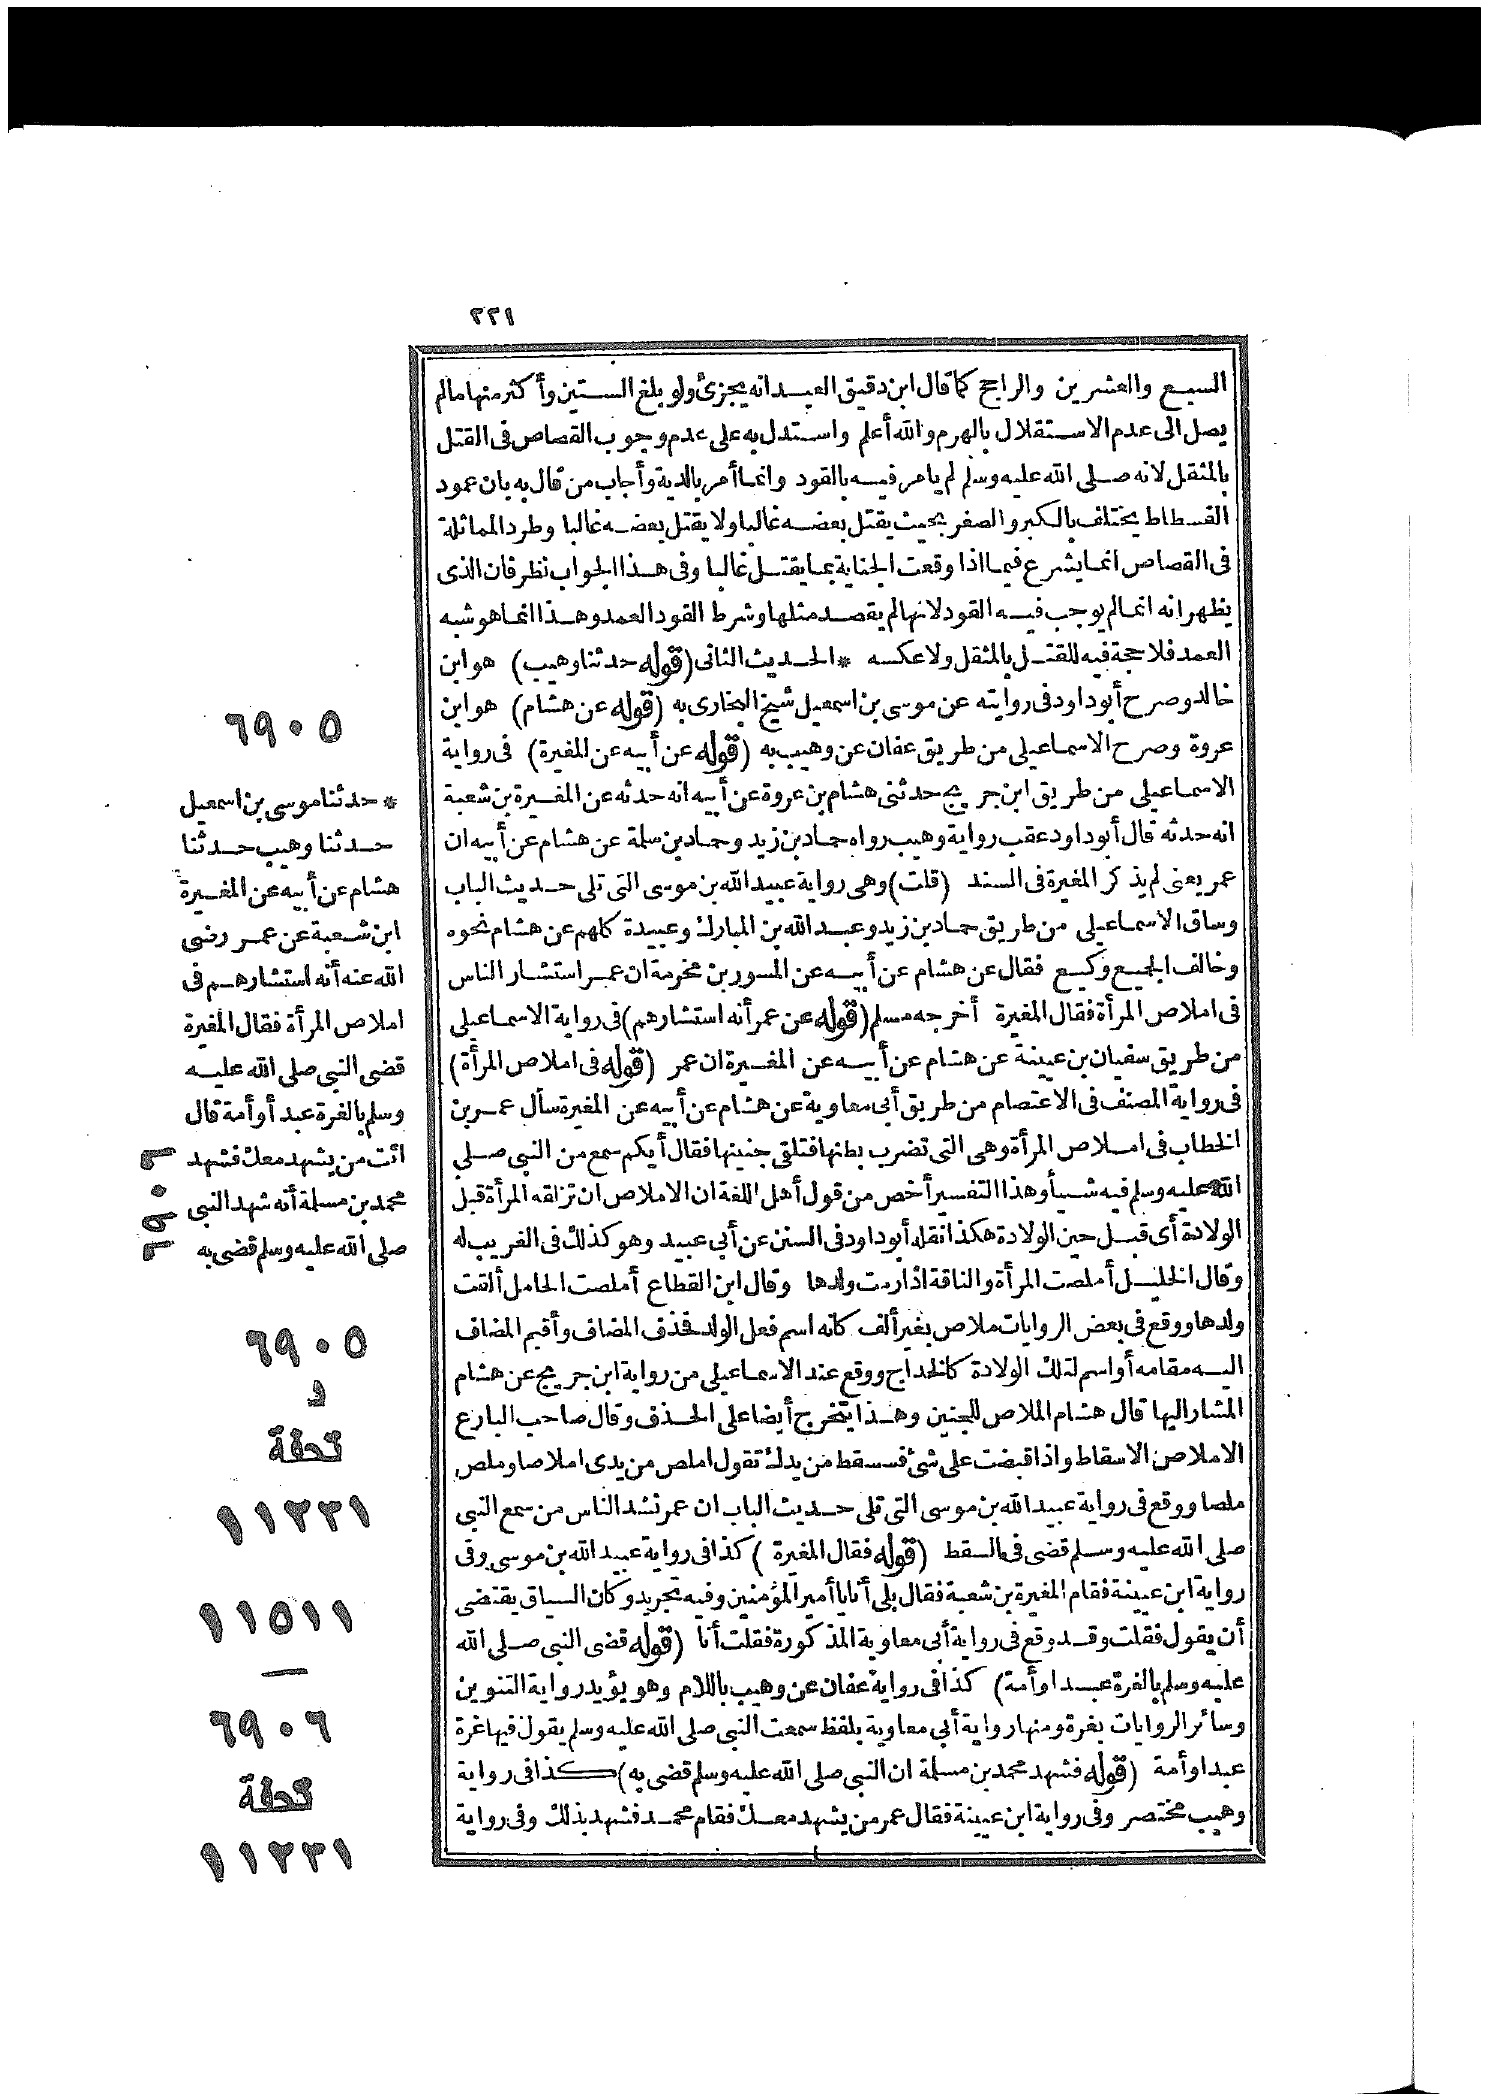 ٢٢١
السبع والعشرين والراجح كما قال ابن دقيق العيد انه يجزئ ولو بلغ الستين وأكثر منها مالم
يصل الى عدم الاستقلال بالهرم والله أعلم واستدل به على عدم وجوب القصاص فى القتل
بالمثقل لانه صلى الله عليه وسلم لم يامر فيه بالقود وانما أمر بالدية وأجاب من قال به بان عمود
الفسطاط يختلف بالكبر والصغر بحيث يقتل بعضه غالبا ولا يقتل بعضه غالبا وطرد المماثلة
فى القصاص انما يشرع فيما اذا وقعت الجناية بما يقتل غالبا وفى هذا الجواب نظر فان الذى
يظهر انه انما لم يوجب فيه القود لانها لم يقصد مثلها وشرط القود العمد وهذا انما هو شبه
العمد فلا حجة فيه للقتل بالمثقل ولا عكسه * الحديث الثانى (قوله حدثنا وهيب) هو ابن
خالد وصرح أبو داود فى روايته عن موسى بن اسمعيل شيخ البخارى به (قوله عن هشام) هو ابن
عروة وصرح الاسماعيلى من طريق عفان عن وهيب به (قوله عن أبيه عن المغيرة) فى رواية
الاسماعيلى من طريق ابن جريج حدثنى هشام بن عروة عن أبيه انه حدثه عن المغيرة بن شعبة
انه حدثه قال أبو داود عقب رواية وهيب رواه حماد بن زيد وحماد بن سلمة عن هشام عن أبيه ان
عمر يعنى لم يذكر المغيرة فى السند (قلت) وهى رواية عبيد الله بن موسى التى تلى حديث الباب
وساق الاسماعيلى من طريق حماد بن زيد وعبد الله بن المبارك وعبيدة كلهم عن هشام نحوه
وخالف الجميع وكيع فقال عن هشام عن أبيه عن المسور بن مخرمة ان عمر استشار الناس
فى املاص المرأة فقال المغيرة أخرجه مسلم (قوله عن عمر أنه استشارهم) فى رواية الاسماعيلى
من طريق سفيان بن عيينة عن هشام عن أبيه عن المغيرة ان عمر (قوله فى املاص المرأة)
فى رواية المصنف فى الاعتصام من طريق أبى معاوية عن هشام عن أبيه عن المغيرة سأل عمر بن
الخطاب فى املاص المرأة وهى التى تضرب بطنها فتلقى جنينها فقال أيكم سمع من النبى صلى
الله عليه وسلم فيه شيأ وهذا التفسير أخص من قول أهل اللغة ان الاملاص ان تزلقه المرأة قبل
الولادة أى قبل حين الولادة هكذا نقله أبو داود فى السنن عن أبى عبيد وهو كذلك فى الغريب له
وقال الخليل أملصت المرأة والناقة اذا رمت ولدها وقال ابن القطاع أملصت الحامل ألقت
ولدها ووقع فى بعض الروايات ملاص بغير ألف كانه اسم فعل الولد فحذف المضاف وأقيم المضاف
اليه مقامه أو اسم لتلك الولادة كالخداج ووقع عند الاسماعيلى من رواية ابن جريج عن هشام
المشار اليها قال هشام الملاص للجنين وهذا يتخرج أيضا على الحذف وقال صاحب البارع
الاملاص الاسقاط واذا قبضت على شئ فسقط من يدك تقول املص من يدى املاصا وملص
ملصا ووقع فى رواية عبيد الله بن موسى التى تلى حديث الباب ان عمر نشد الناس من سمع النبى
صلى الله عليه وسلم قضى فى السقط (قوله فقال المغيرة) كذا فى رواية عبيد الله بن موسى وفى
رواية ابن عيينة فقام المغيرة بن شعبة فقال بلى أنا يا أمير المؤمنين وفيه تجريد وكان السياق يقتضى
أن يقول فقلت وقد وقع فى رواية أبى معاوية المذكورة فقلت أنا (قوله قضى النبى صلى الله
عليه وسلم بالغرة عبد اوأمة) كذا فى رواية عفان عن وهيب باللام وهو يؤيد رواية التنوين
وسائر الروايات بغرة ومنها رواية أبى معاوية بلفظ سمعت النبى صلى الله عليه وسلم يقول فيها غرة
عبد اوأمة (قوله فشهد محمد بن مسلمة ان النبى صلى الله عليه وسلم قضى به) كذا فى رواية
وهيب مختصر وفى رواية ابن عيينة فقال عمر من يشهد معك فقام محمد فشهد بذلك وفى رواية
٦٩٠٥
* حدثنا موسى بن اسمعيل
حدثنا وهيب حدثنا
هشام عن أبيه عن المغيرة
ابن شعبة عن عمر رضى
الله عنه أنه استشارهم فى
املاص المرأة فقال المغيرة
قضى النبى صلى الله عليه
وسلم بالغرة عبد أوأمة قال
ائت من يشهد معك فشهد
محمد بن مسلمة أنه شهد النبى
صلى الله عليه وسلم قضى به
٦٩٠٦
٦٩٠٥
د
تحفة
١١٢٣١
١١٥١١
٦٩٠٦
تحفة
١١٢٣١